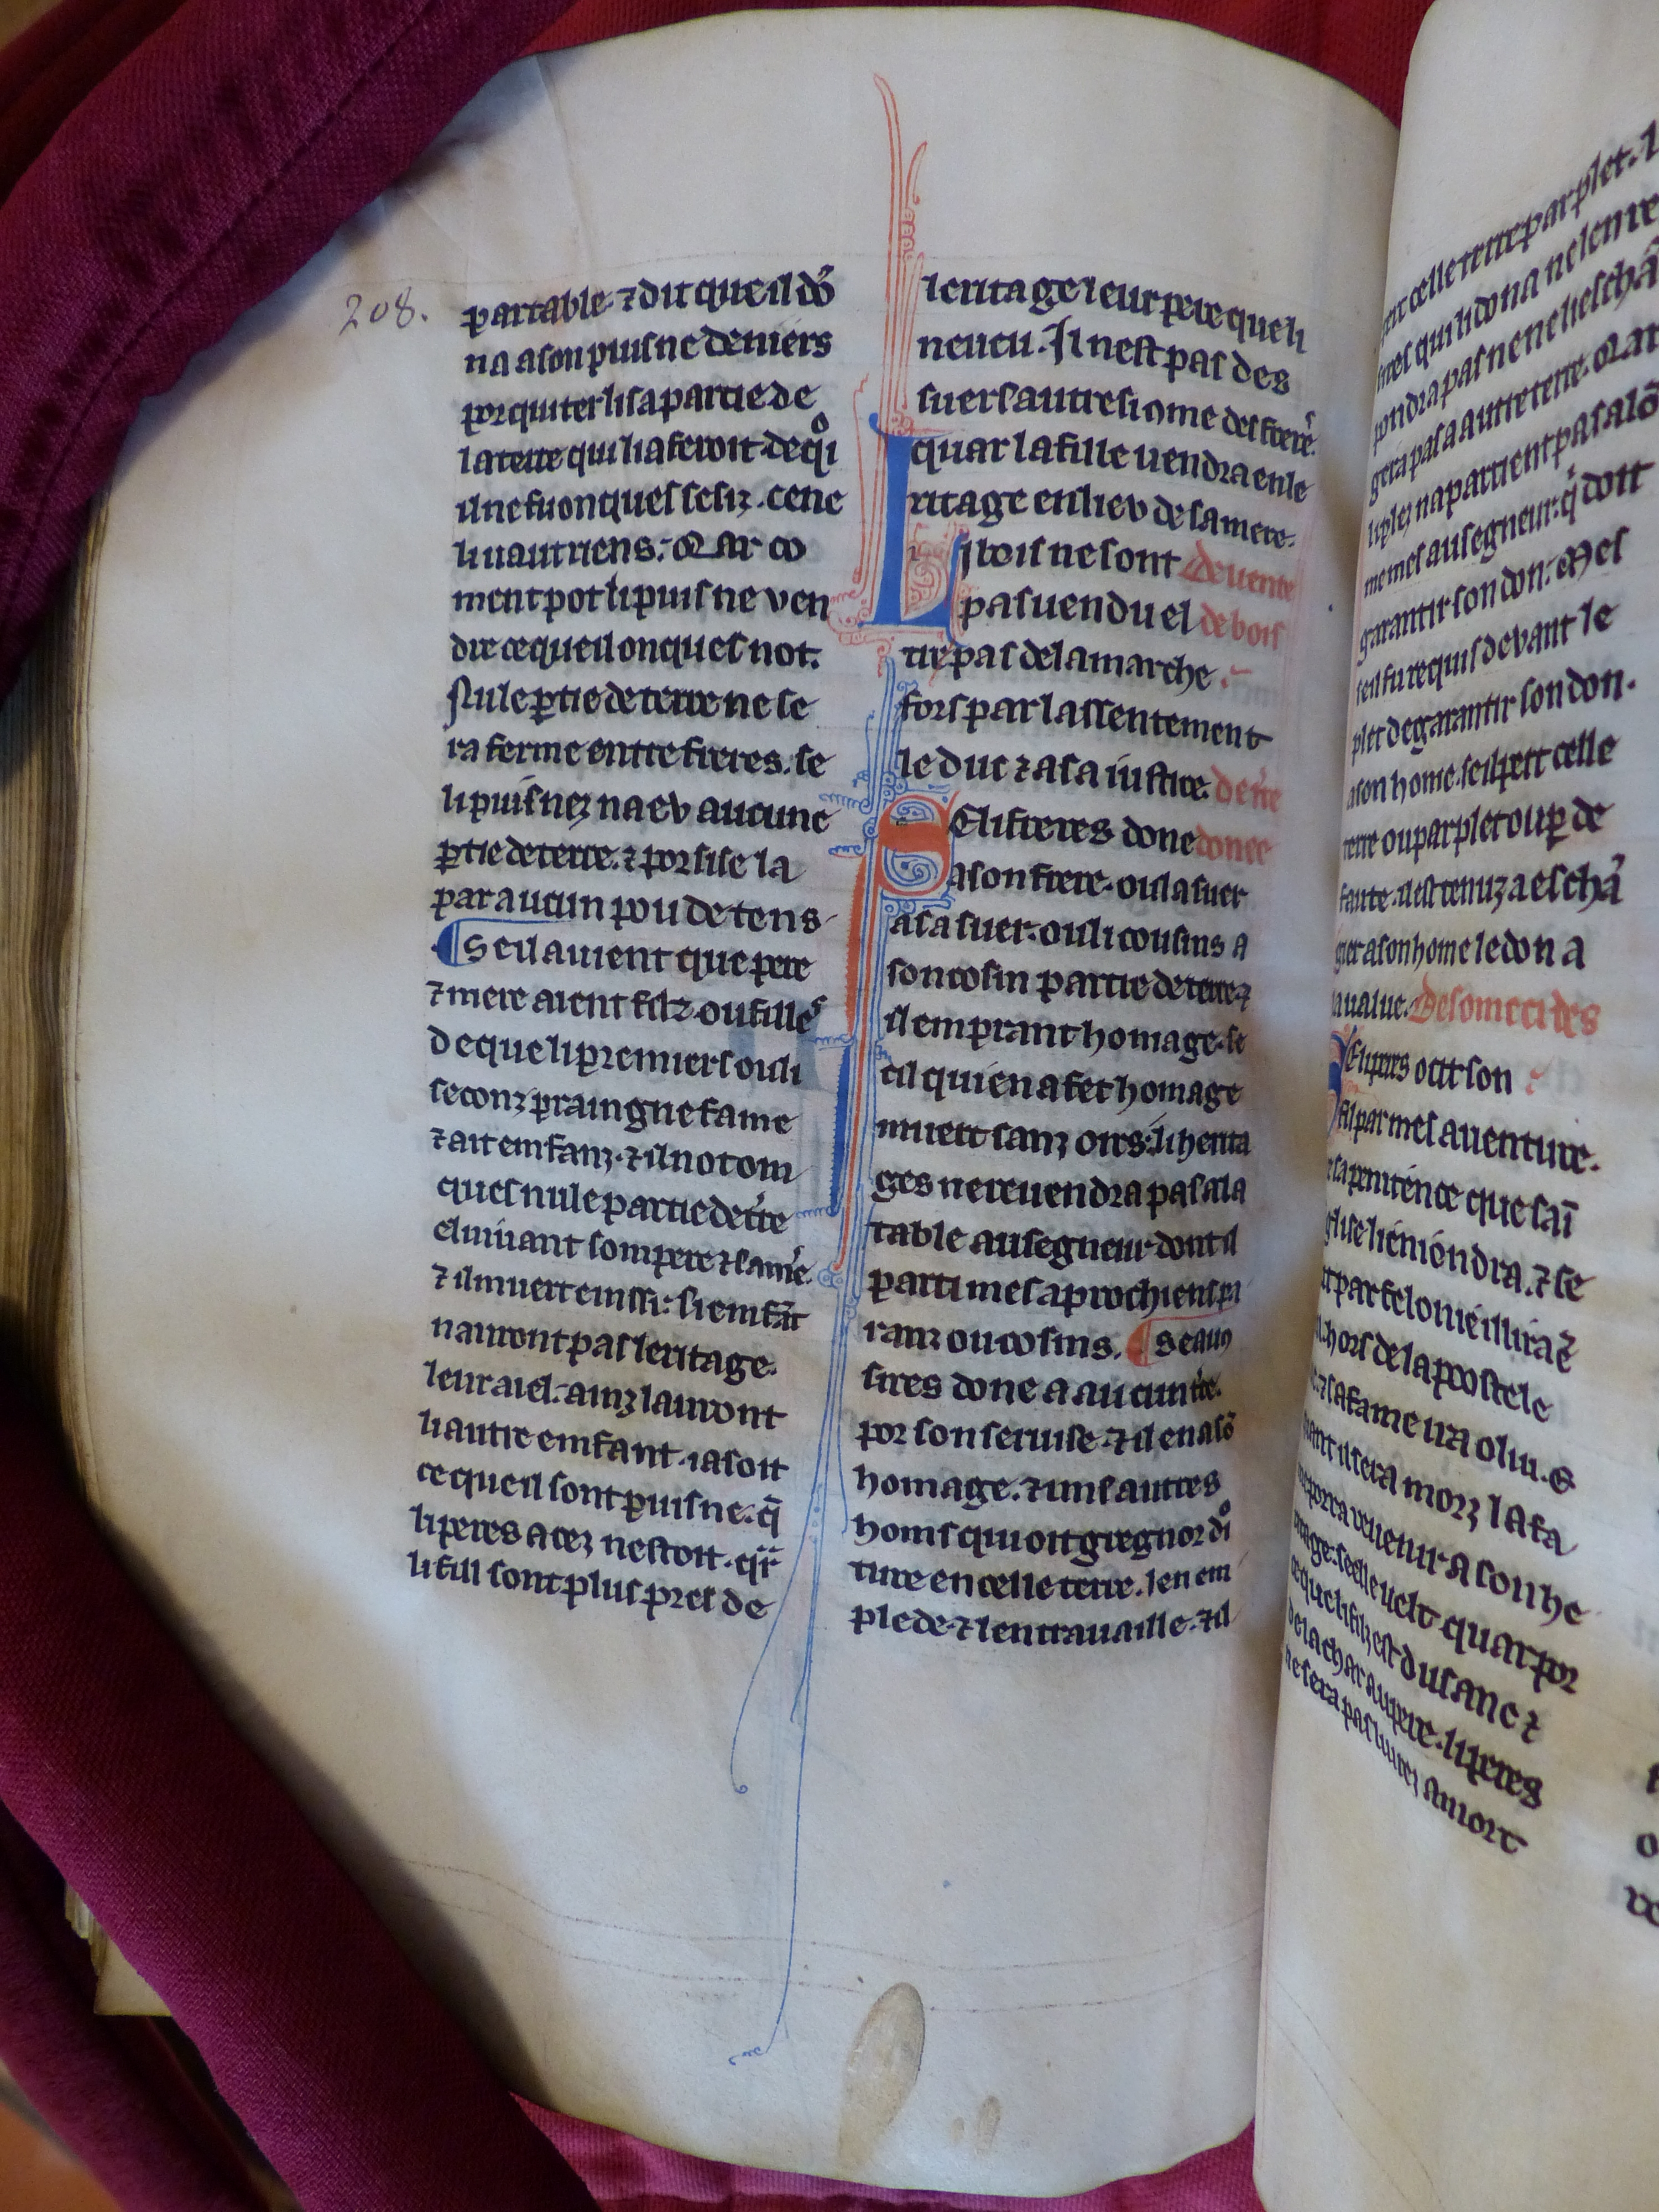 208.
partable ⁊ dit que il dō
na a son puis ne deniers
por quiter li sa partie de
la terre qui li aferoit de qͦi
il ne fu onques sesiz. ce ne
li uaut riens. Qar co
ment pot li puis ne ven
dre ce que il onques not.
Nule ꝑtie de terre ne se
ra ferme entre freres. se
li puis nez na ev aucune
ꝑtie de terre. ⁊ por sise la
par aucun pou de tens
¶ Se il auient que pere
⁊ mere aient filz. ou filles
de que li premiers ou li
seconz praingne fame
⁊ ait emfanz. ⁊ il not om
ques nule partie de tre
el uiuant som pere ⁊ sa me.
⁊ il muert einssi. si emfāt
nauront pas leritage.
leur aiel. ainz lauront
li autre emfant. ia soit
ce que il sont puis ne. q̄
li peres a cez nestoit. qr
li fill sont plus pres de
leritage leur pere que li
neueu. Il nest pas des
suers autresi ꝯme des freres.
quar la fille uendra en le
ritage en liev de sa mere.
Li bois ne sont de uente
pas uendu el de bois
tre pas de la marche.
fors par lassentement
le duc ⁊ a sa iustice. de tre
Se li freres done donee
a son frere. ou la suer
a sa suer. ou li cousins a
son cosin partie de terre ⁊
il em prant homage. se
cil qui en a fet homage
muert sanz oirs. li herita
ges ne reuendra pas a la
table au segneur dont il
parti mes a prochiens pa
ranz ou cosins. ¶ Se aucū
sires done a aucun tre.
por son seruise. ⁊ il en a sō
homage. ⁊ uns autres
homs qui oit gregnor dͦi
ture en celle terre. len em
plede. ⁊ len trauaille. ⁊ il
celle terre par plet.
qui li dona ne len re
pondra pas ne ne li eschā
gera pas a autre terre. Qar
li plez napartient pas a lō
me mes au segneur. q̇ doit
garantir son don. Mes
sen fu requis devant le
plet de garantir son don.
a son home. se il pert celle
terre ou par plet ou ꝑ de
faute. il est tenuz a eschā
gier a son home le don a
la value. Des omecides
Se li peres ocit son
fil par mesauenture.
sa penitence que sai
glise li eniondra. ⁊ se
par felonie il lira
hors de la poostele
⁊ sa fame ira o lui. ⁊
quant il sera morz la fa
me porra reuenir a son he
ritage. se elle uelt quar por
ce que li filz est du sanc ⁊
de la char au pere. li peres
ne sera pas iuitiez a mort